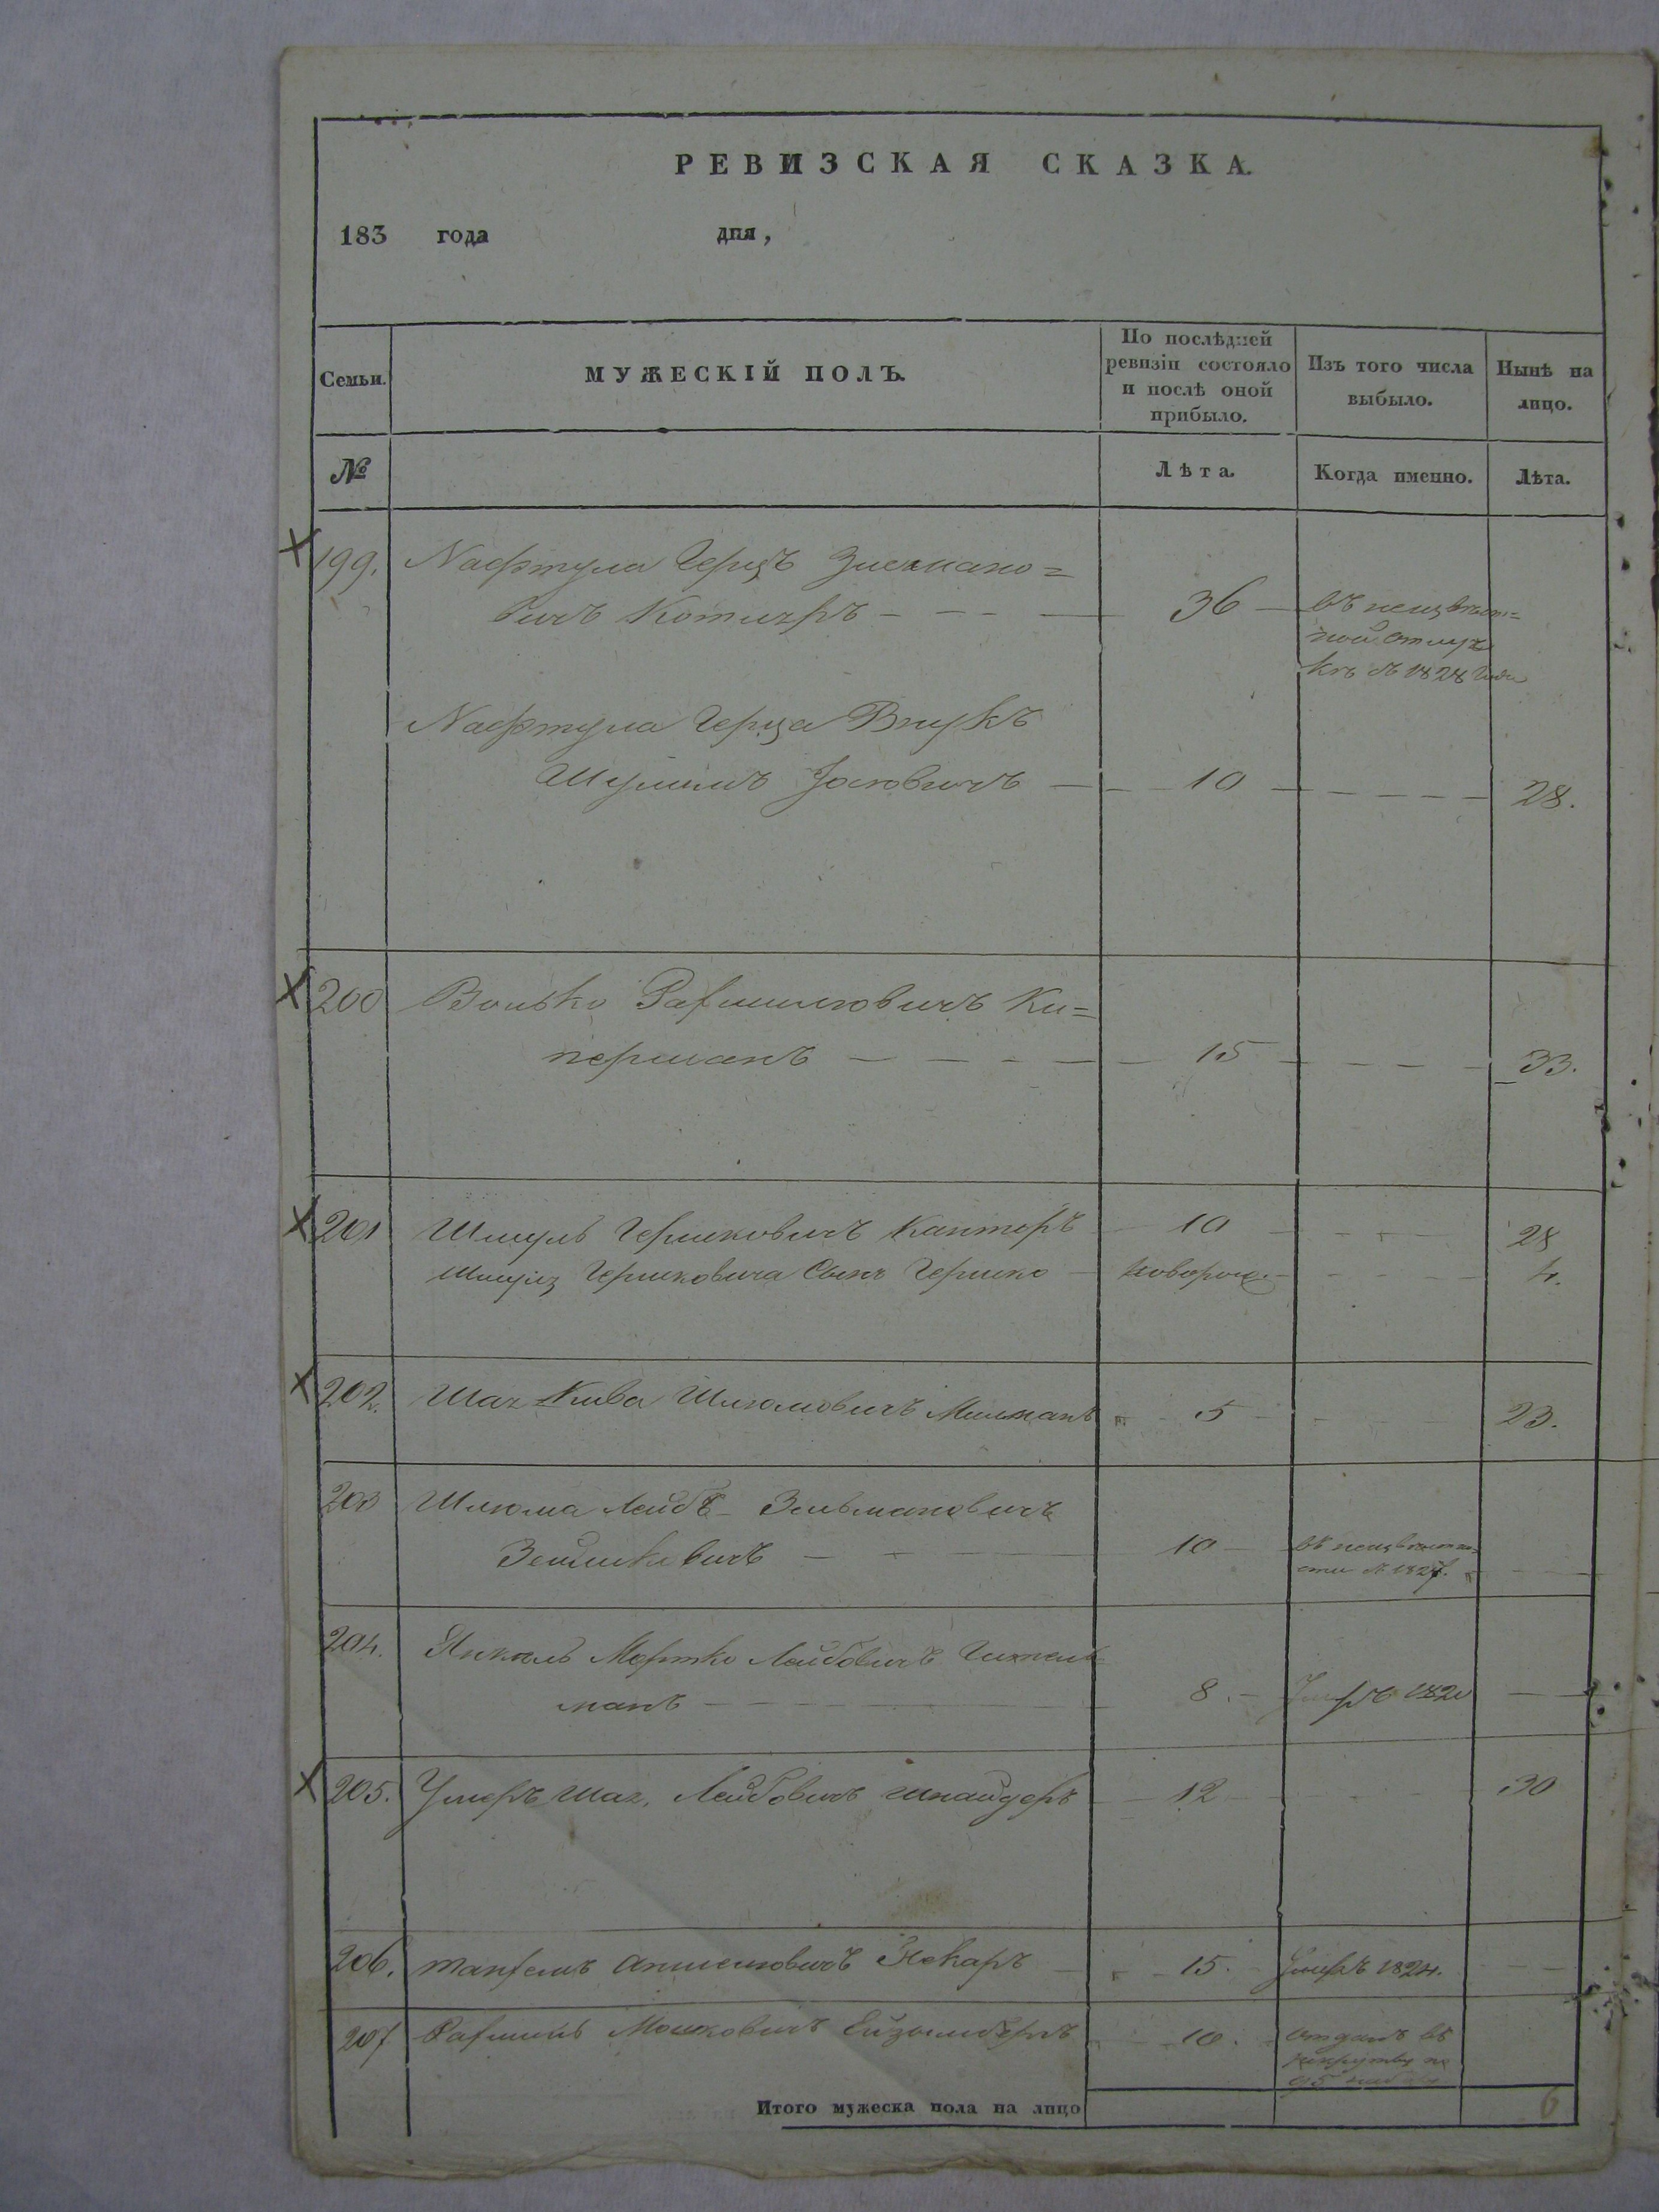 РЕВИЗСКАЯ СКАЗКА.
183 года дня,
Семьи.
МУЖЕСКІЙ ПОЛЪ.
По послѣдней
ревизіи состояло
и послѣ оной
прибыло.
Изъ того числа
выбыло.
Нынѣ на
лицо.
№
Лѣта.
Когда именно.
Лѣта.
199. Нафтула Герцъ
вичъ 36
въ неизвѣст=
ной отлуч
кѣ съ 1828 года
Нафтула Герца Внукъ
Шулимъ Іосіовичъ 10 28.
200 Волько Рафаиловичъ Ки=
перманъ 15 33.
201 Шмуль Гершковичъ Канторъ 10 28
Шмуля Гершковича Сынъ Гершко новорож. 4.
202. Шая Акива Шліомовичъ 5 23.
203 Шліома Лейбъ Зельмановичъ
10 въ неизвѣстно=
сти съ 1827.
204. Янкель Мортко Лейбовичъ
манъ 8. Умеръ 1820
205. Умеръ Шая Лейбовичъ Шнайдеръ 12 30
206. 15. Умеръ 1824.
207 Рафаилъ Мошковичъ 10. отданъ въ
рекруты
Итого мужеска пола на лицо 6